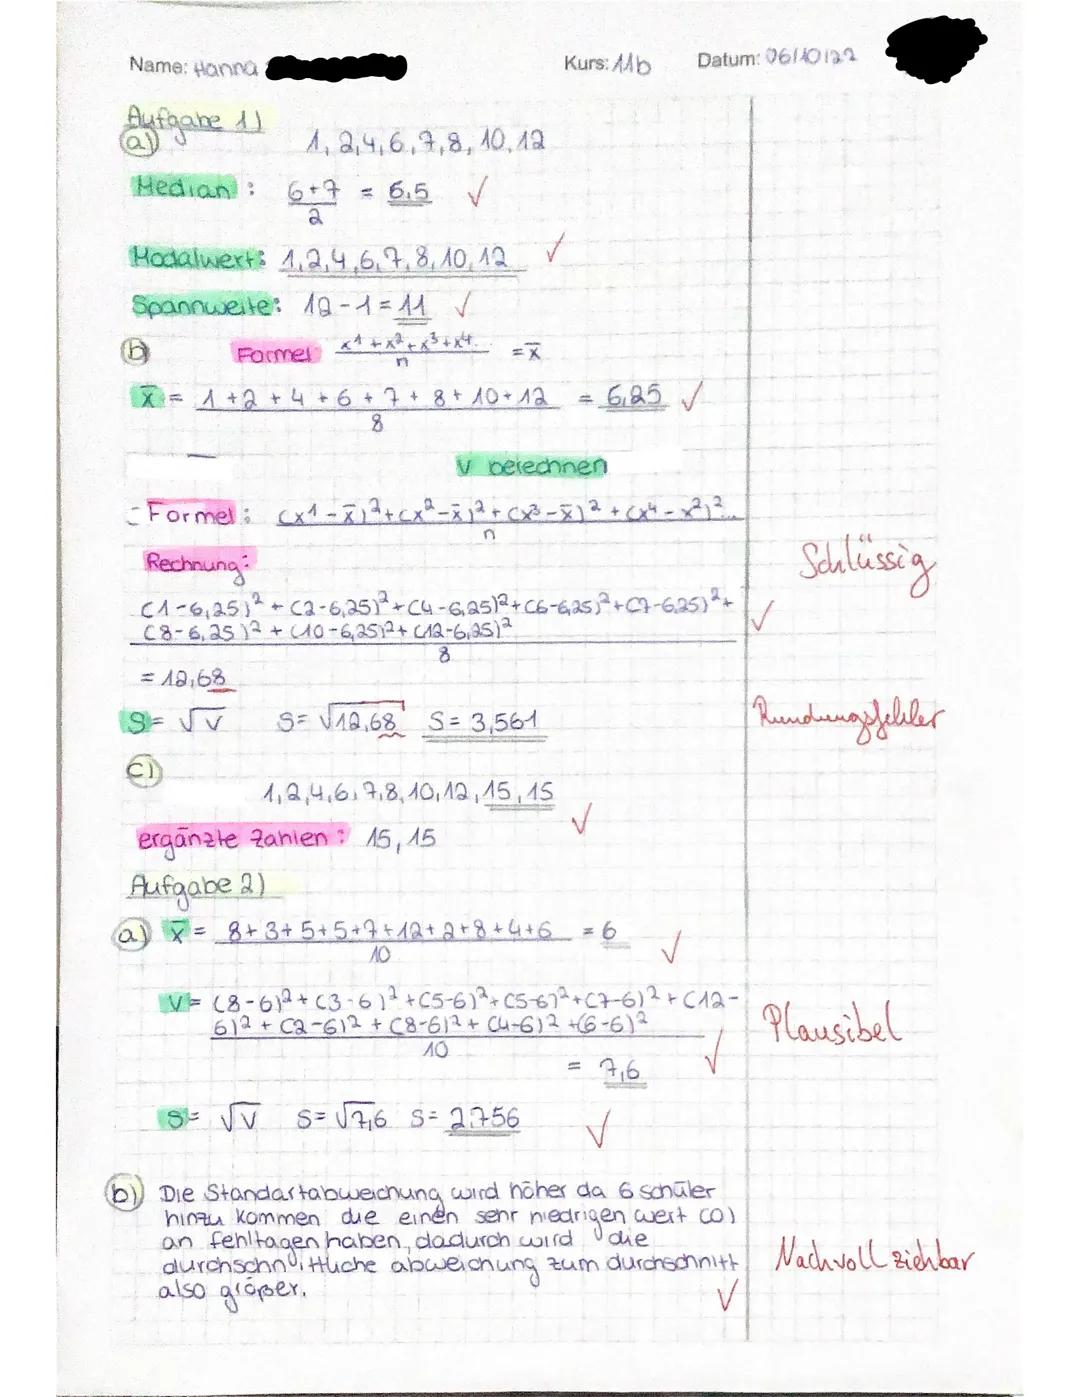 Name: Hanna
Kurs: 11b
Datum: 06/10/22
Aufgabe 1)
a)
1, 2, 4, 6, 7, 8, 10, 12
Median: (6+7)/2 = 6.5 ✓
Modalwert: 1, 2, 4, 6, 7, 8, 10, 12 ✓
Spannweite: 12 - 1 = 11 ✓
b) Formel (x¹ + x² + x³ + x⁴...)/n = x̄
x̄ = (1 + 2 + 4 + 6 + 7 + 8 + 10 + 12)/8 = 6,25 ✓
V berechnen
- Formel: ((x¹ - x̄)² + (x² - x̄)² + (x³ - x̄)² + (x⁴ - x²)²...)/n
Rechnung:
Schlüssig
(1-6,25)² + (2-6,25)² + (4-6,25)² + (6-6,25)² + (7-6,25)² +
(8-6,25)² + (10-6,25)² + (12-6,25)² ✓
8
= 12,68
S = √V S = √12,68 S = 3,561
Rundungsfehler
c)
1, 2, 4, 6, 7, 8, 10, 12, 15, 15
ergänzte Zahlen: 15, 15 ✓
Aufgabe 2)
a) x̄ = (8 + 3 + 5 + 5 + 7 + 12 + 2 + 8 + 4 + 6)/10 = 6 ✓
V = (8-6)² + (3-6)² + (5-6)² + (5-6)² + (7-6)² + (12-
6)² + (2-6)² + (8-6)² + (4-6)² + (6-6)²
10
= 7,6 ✓
Plausibel
S = √V S = √7,6 S = 2.756 ✓
b) Die Standartabweichung wird höher da 6 schüler
hinzu kommen die einen sehr niedrigen wert (0)
an fehltagen haben, dadurch wird die
durchschnittliche abweichung zum durchschnitt
also größer. ✓
Nachvollziehbar